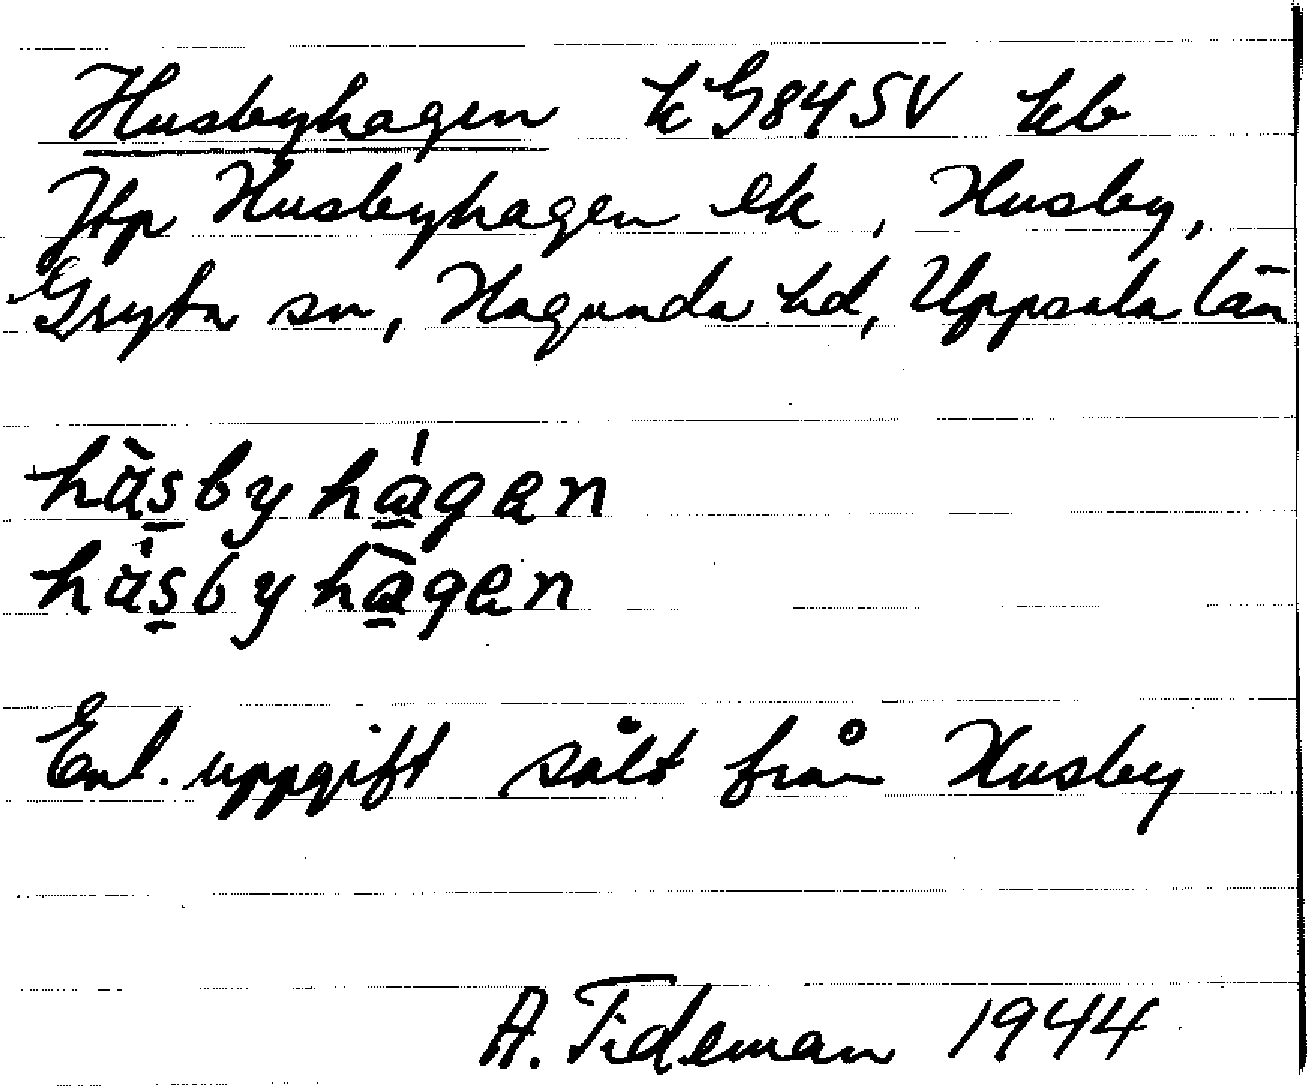 Husbyhagen kG84SV kb
Jfp Husbyhagen ek, Husby,
Gryta sn, Hagunda hd, Uppsala län
hùsbyhágen
húsbyhàgen
Enl. uppgift sålt från Husby
A. Tideman 1944